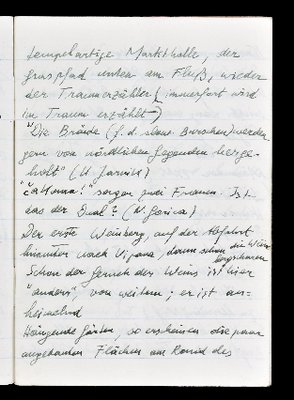 tempelartige Markthalle, der
Graspfad unten am Fluß, wieder
der Traumerzähler (immerfort wird
im Traum erzählt)
"Die Bräute (f. d. slow. Burschen) werden
gern von nördlichen Gegenden herge-
holt" (H. Jarnia)
sagen zwei Frauen. Ist
das der Dual? (H. Gorica)
Der erste Weinberg, auf der Abfahrt
hinunter nach Vipava, darum schon die Wein
bergschnecken
Schon der Geruch des Weins ist hier
"anders", von weitem; er ist an-
heimelnd
Hängende Gärten, so erscheinen die paar
angebauten Flächen am Rand des